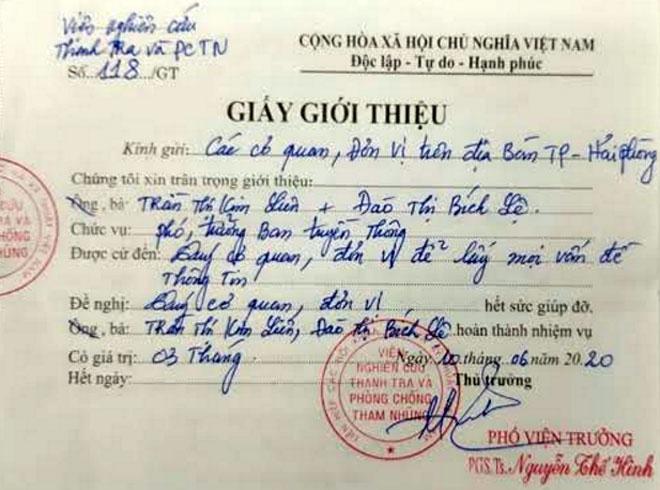 Viện nghiên cứu
Thanh tra và PCTN
Số 118 /GT
CỘNG HÒA XÃ HỘI CHỦ NGHĨA VIỆT NAM
Độc lập - Tự do - Hạnh phúc
GIẤY GIỚI THIỆU
Kính gửi: Các cơ quan, Đơn vị trên địa Bàn TP - Hải phòng
Chúng tôi xin trân trọng giới thiệu:
Ông, bà: Trần Thị Kim Liên + Đào Thị Bích Lệ.
Chức vụ: phó, trưởng Ban truyền Thông
Được cử đến: Quý cơ quan, đơn vị để lấy mọi vấn đề
Thông Tin
Đề nghị: Quý cơ quan, đơn vị hết sức giúp đỡ,
Ông, bà: Trần Thị Kim Liên, Đào Thị Bích Lệ hoàn thành nhiệm vụ
Có giá trị: 03 Tháng.
Ngày 20 tháng 06 năm 20.20
Hết ngày:
Thủ trưởng
VIỆN
NGHIÊN CỨU
THANH TRA VÀ
PHÒNG CHỐNG
THAM NHŨNG
PHÓ VIỆN TRƯỞNG
PGS.Ts. Nguyễn Thế Hinh